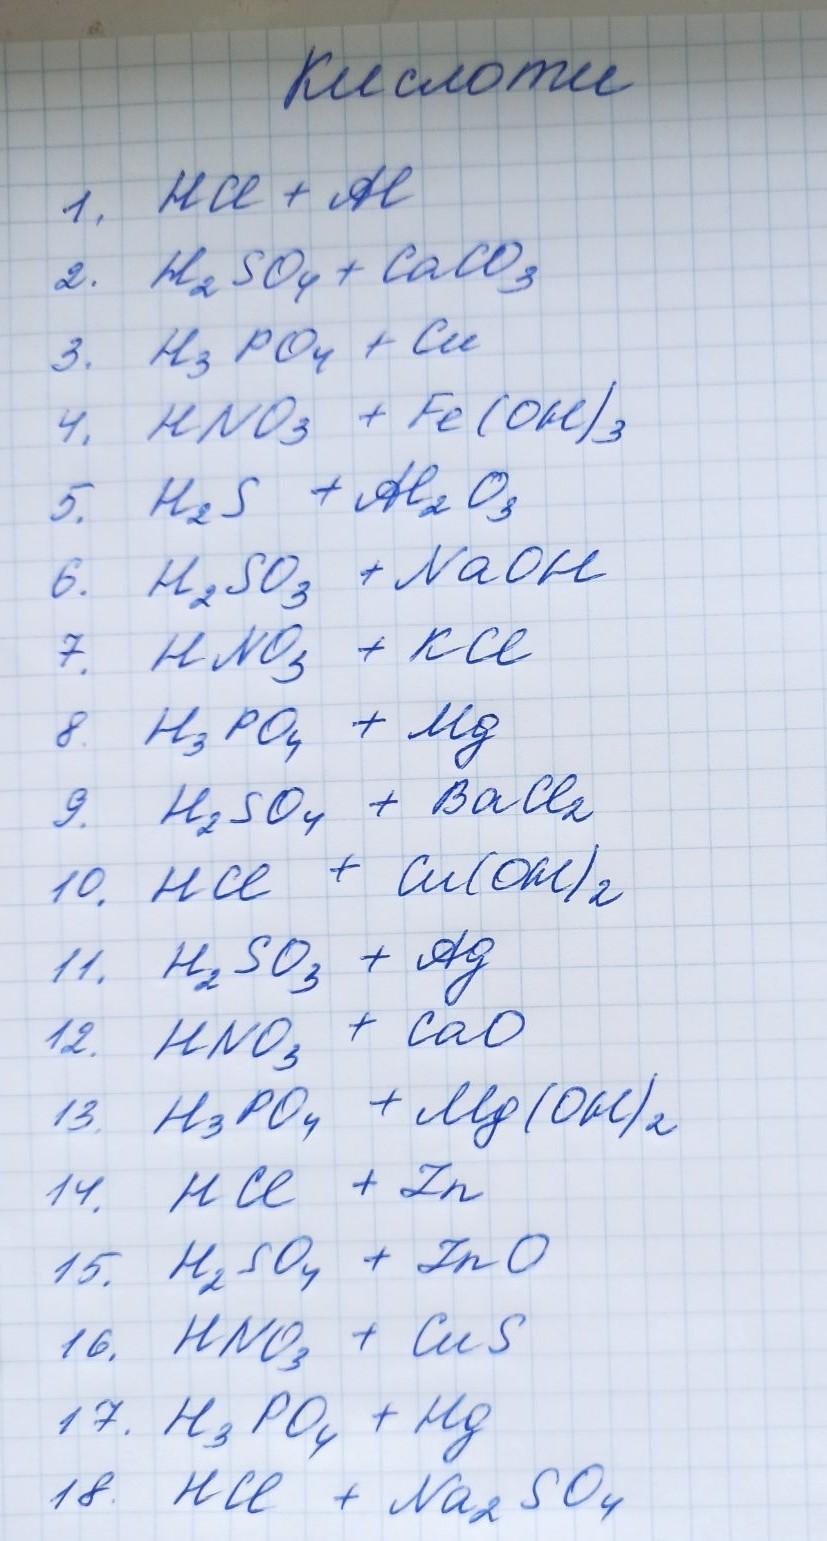 Кислоти
1. HCl + Al
2. H₂SO₄ + CaCO₃
3. H₃PO₄ + Cu
4. HNO₃ + Fe(OH)₃
5. H₂S + Al₂O₃
6. H₂SO₃ + NaOH
7. HNO₃ + KCl
8. H₃PO₄ + Mg
9. H₂SO₄ + BaCl₂
10. HCl + Cu(OH)₂
11. H₂SO₃ + Ag
12. HNO₃ + CaO
13. H₃PO₄ + Mg(OH)₂
14. HCl + Zn
15. H₂SO₄ + ZnO
16. HNO₃ + CuS
17. H₃PO₄ + Hg
18. HCl + Na₂SO₄